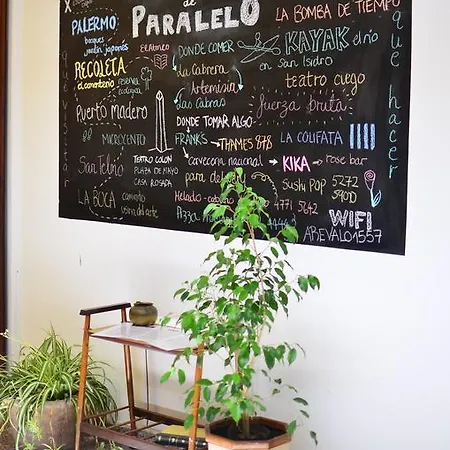 de
PARALELO
LA BOMBA DE TIEMPO
PALERMO
bosques
jardin japonés
El Ateneo
DONDE COMER
KAYAK el río
en San Isidro
RECOLETA
el cementerio
reserva
ecológica
La Cabrera
Artemisia
las cabras
teatro ciego
fuerza bruta
Puerto MADERO
DONDE TOMAR ALGO
MICROCENTO
FRANK'S
THAMES 878
LA COLIFATA
San Telmo
TEATRO COLON
PLAZA DE MAYO
CASA ROSADA
cervecería nacional
KIKA
rose bar
para del
Sushi Pop
5272
5900
LA BOCA
caminito
usina del arte
Helado
4771
5652
WIFI
AREVALO1557
que visitar
que hacer